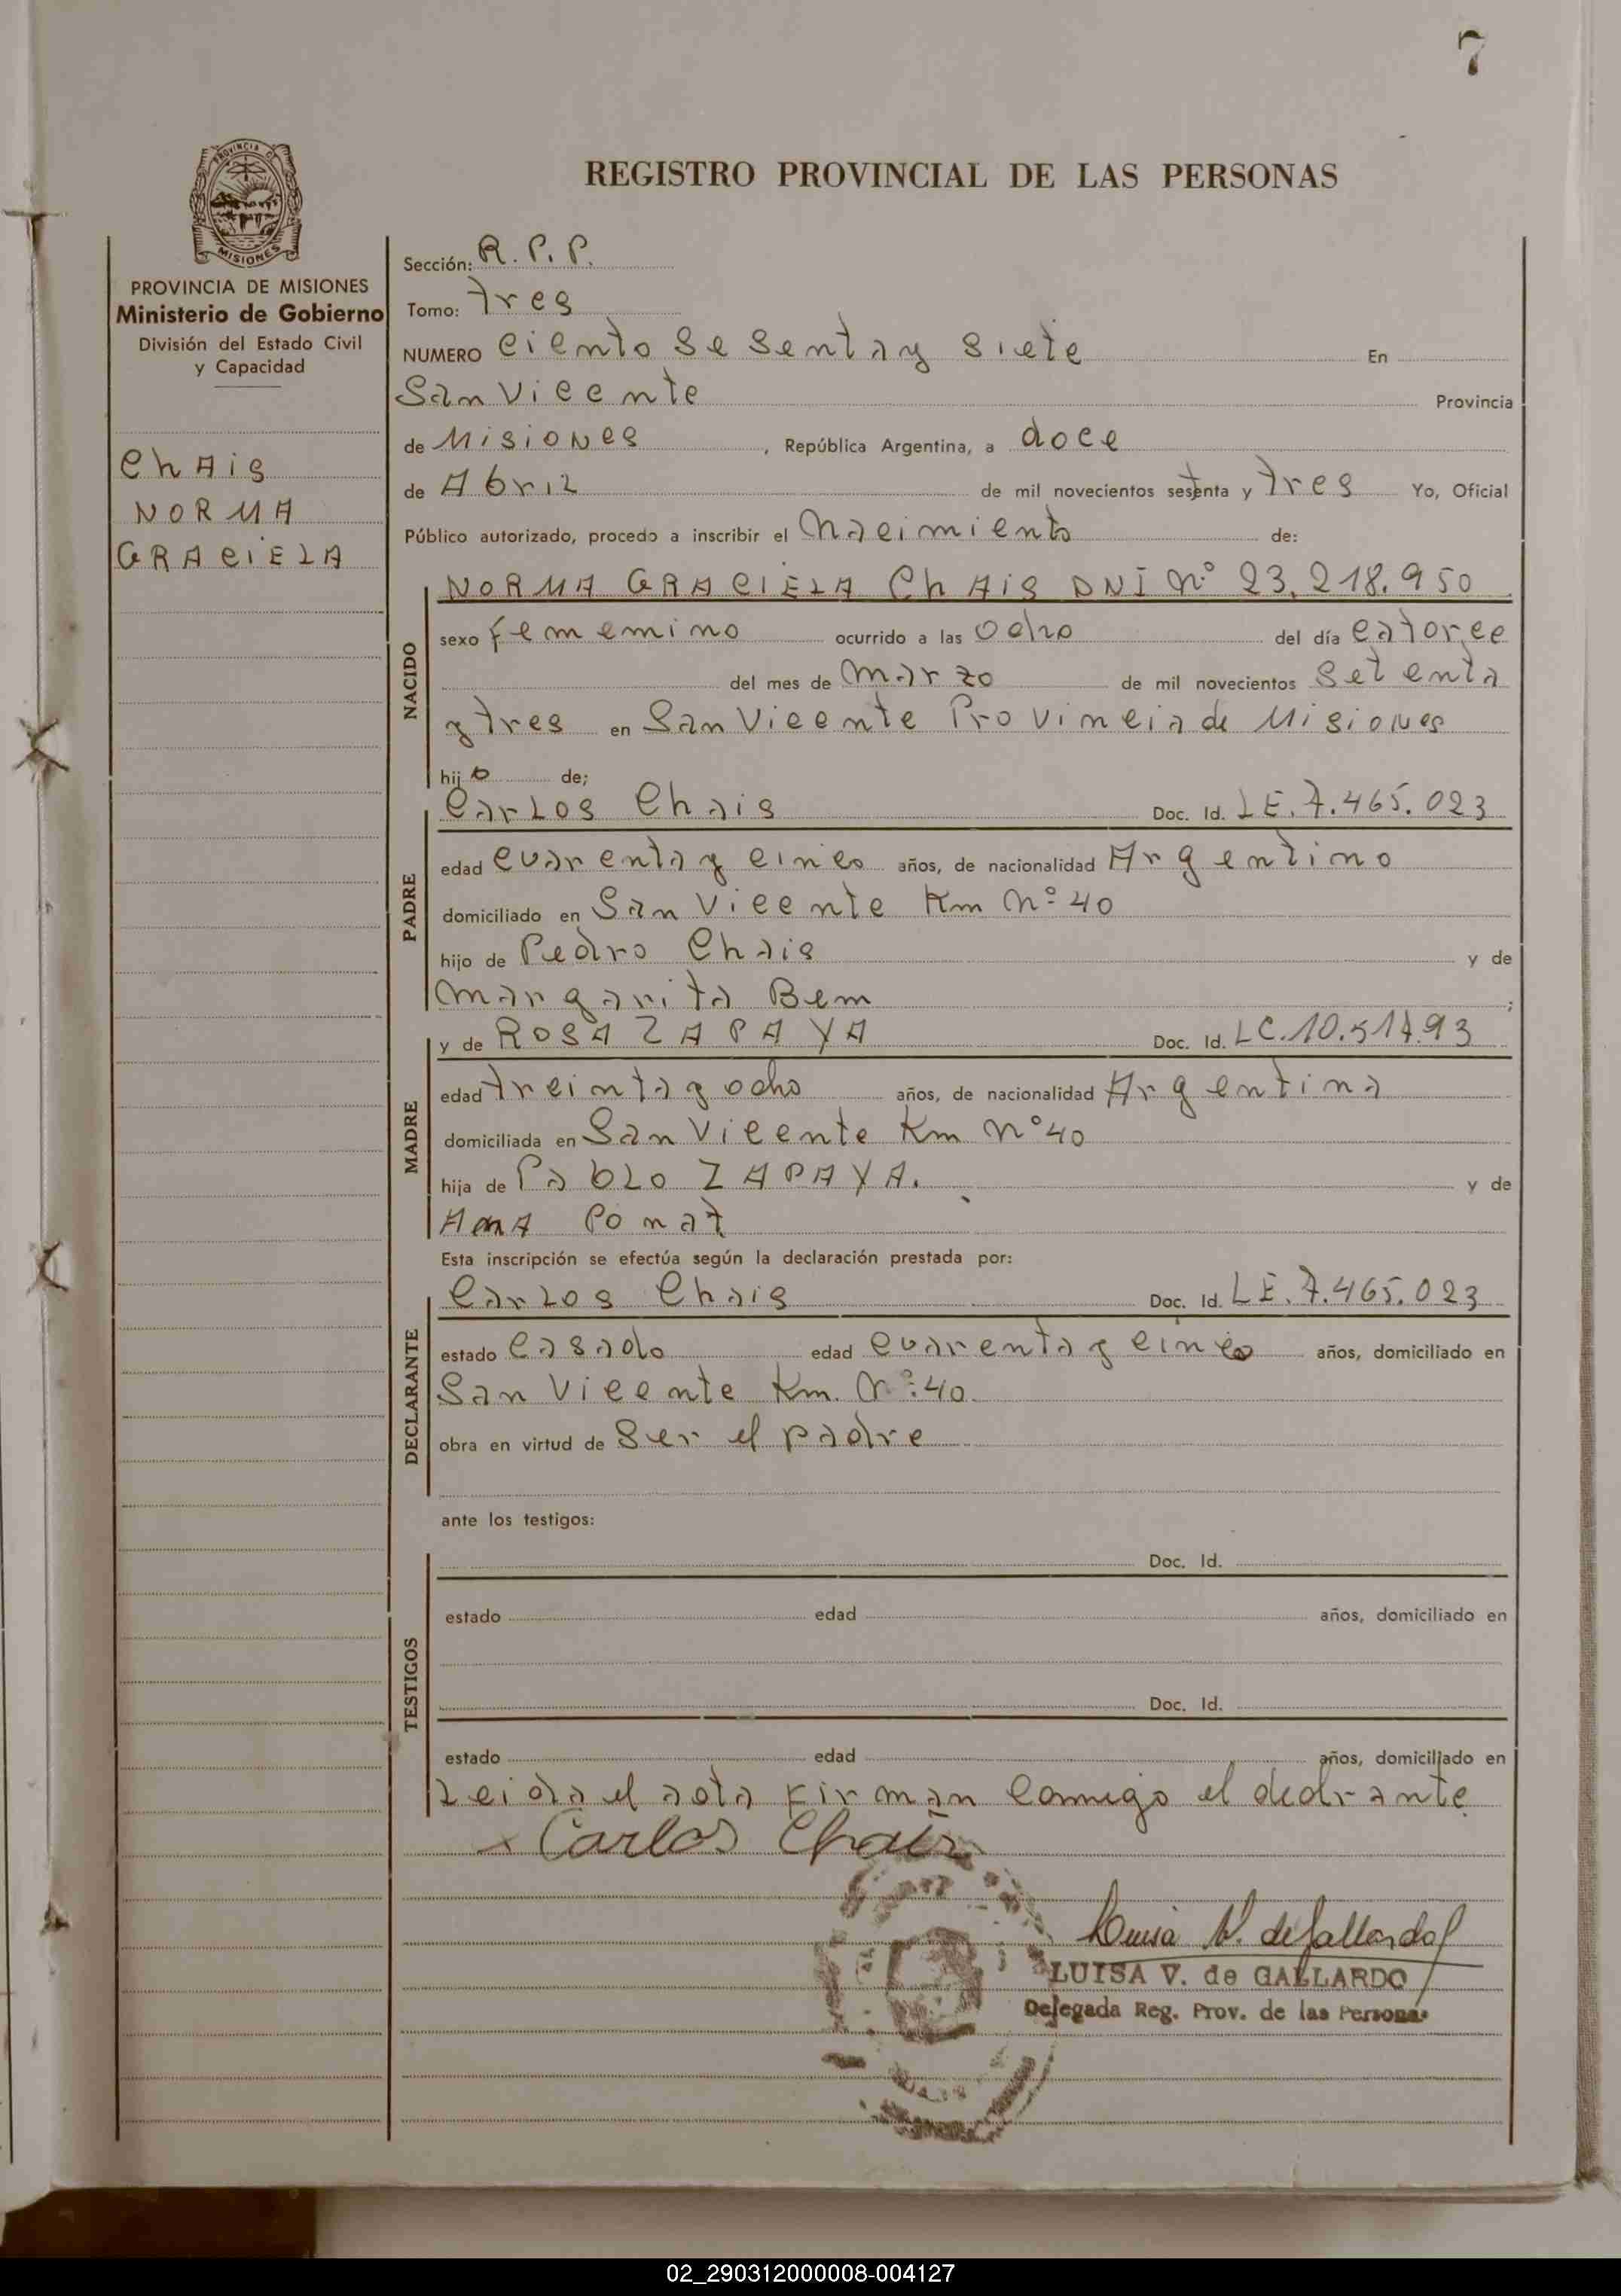 7
REGISTRO PROVINCIAL DE LAS PERSONAS
PROVINCIA DE
MISIONES
PROVINCIA DE MISIONES
Ministerio de Gobierno
División del Estado Civil
y Capacidad
Chais
NORMA
GRACIELA
Sección: R. P. P.
Tomo: tres
NUMERO ciento sesenta y siete En
San Vicente Provincia
de Misiones, República Argentina, a doce
de Abril de mil novecientos setenta y tres Yo, Oficial
Público autorizado, procedo a inscribir el Nacimiento de:
NACIDO
NORMA GRACIELA Chais DNI Nº 23.218.950
sexo femenino ocurrido a las Ocho del día catorce
del mes de Marzo de mil novecientos setenta
y tres en San Vicente Provincia de Misiones
hijo de;
PADRE
Carlos Chais Doc. Id. LE. 7.465.023
edad cuarenta y cinco años, de nacionalidad Argentino
domiciliado en San Vicente Km Nº 40
hijo de Pedro Chais y de
Margarita Bem;
MADRE
y de ROSA ZAPAYA Doc. Id. LC. 10.51
edad treinta y ocho años, de nacionalidad Argentina
domiciliada en San Vicente Km Nº 40
hija de Pablo ZAPAYA. y de
Ana Ponat
Esta inscripción se efectúa según la declaración prestada por:
DECLARANTE
Carlos Chais Doc. Id. LE. 7.465.023
estado casado edad cuarenta y cinco años, domiciliado en
San Vicente Km. Nº 40.
obra en virtud de ser el padre
ante los testigos:
TESTIGOS
Doc. Id.
estado edad años, domiciliado en
Doc. Id.
estado edad años, domiciliado en
Leida el acta firman conmigo el declrante
x Carlos Chais
Luisa V. de Gallardo
LUISA V. de GALLARDO
Delegada Reg. Prov. de las Personas
02_290312000008-004127